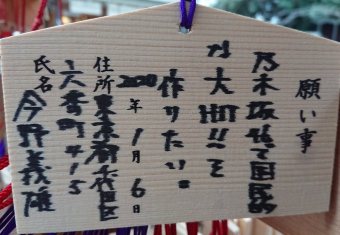 願い事
乃木坂号で国民的
な大ヒット!!を
作りたい。
2020年1月6日
住所 東京都千代田区
六番町4-15
氏名 今野義雄